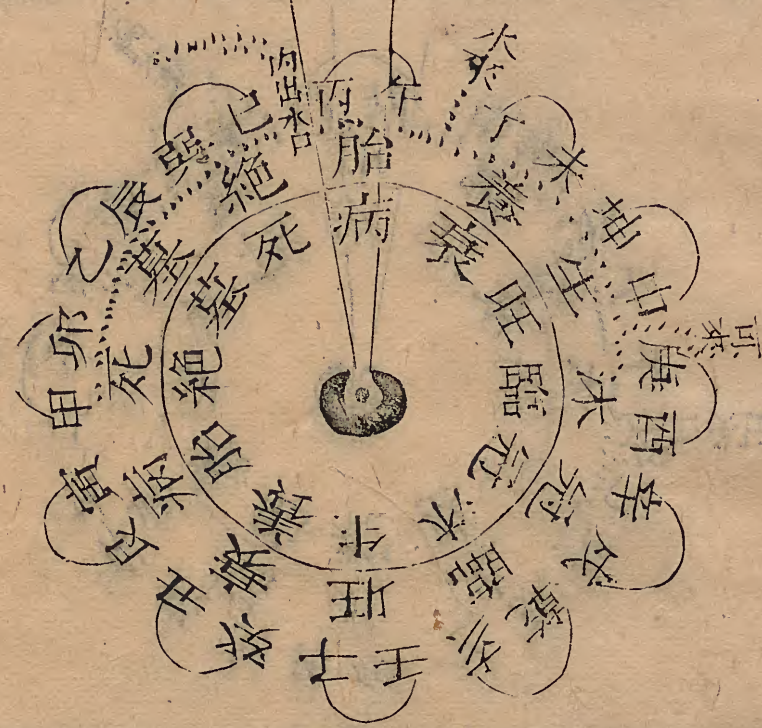 丙午
丁未
坤申
庚酉
辛戌
乾亥
壬子
癸丑
艮寅
甲卯
乙辰
巽巳
胎
養
生
沐
冠
臨
旺
衰
病
死
墓
絶
病
衰
旺
臨
冠
沐
生
養
胎
絶
墓
死
出水口
可來